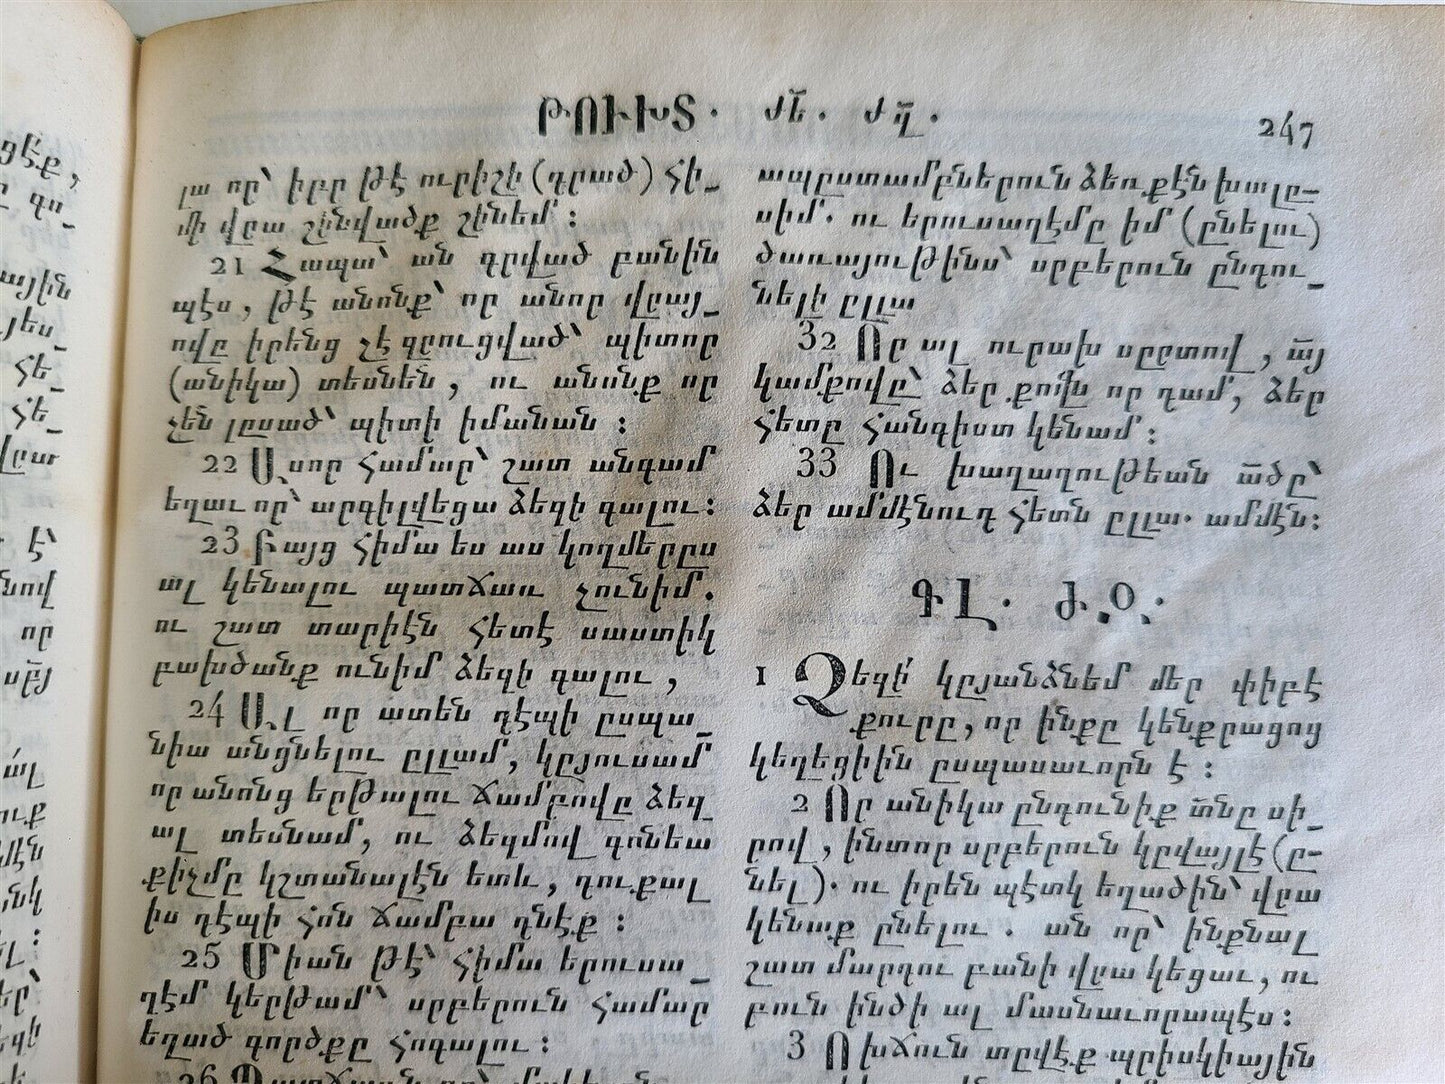 ԹՈՒԽՏ. ԺԵ. ԺԶ.
247
լա որ՝ իբր թէ ուրիշի (դրած) հի_
մի վրա շինվածք շինեմ :
21 Հապա՝ ան գրված բանին
պէս, թէ անոնք՝ որ անոր վրայ_
ովը իրենց չէ զրուցված՝ պիտոր
(անիկա) տեսնեն, ու անոնք որ
չեն լըսած՝ պիտի իմանան :
22 Ասոր համար՝ շատ անգամ
եղաւ որ՝ արգիլվեցա ձեզի գալու:
23 Բայց հիմա ես աս կողմերըս
ալ կենալու պատճառ չունիմ.
ու շատ տարիէն հետէ սաստիկ
բախծանք ունիմ ձեզի գալու,
24 Ալ որ ատեն դէպի ըսպա_
նիա անցնելու ըլլամ, կըյուսամ
որ անոնց երթալու ճամբովը ձեզ
ալ տեսնամ, ու ձեզմով գոնեա
քիչմը կշտանալէն ետև, դուք ալ
իս դէպի հոն ճամբա դնէք :
25 Միան թէ՝ հիմա երուսա_
ղէմ կերթամ՝ սրբերուն համար
եղած գործքը հոգալու :
ապըստամբներուն ձեռքէն խալը_
սիմ. ու երուսաղէմը իմ (ընելու)
ծառայութինս՝ սրբերուն ընդու_
նելի ըլլա
32 Որ ալ ուրախ սըրտով, այ
կամքովը՝ ձեր քովն որ գամ, ձեր
հետը հանգիստ կենամ :
33 Ու խաղաղութեան ած̄ը՝
ձեր ամմէնուդ հետն ըլլա. ամմէն:
ԳԼ. ԺԶ.
1 Ձեզի կըյանձնեմ մեր փիբէ
քուրը, որ ինքը կենքրացոց
կեղեցիին ըսպասաւորն է :
2 Որ անիկա ընդունիք տ̄նը սի_
րով, ինտոր սրբերուն կըվայլէ (ը_
նել). ու իրեն պէտկ եղածին՝ վրա
կենաք ընելու. ան որ՝ ինքնալ
շատ մարդու բանի վրա կեցաւ, ու
բուն ինծի ալ մասնաւորապէս:
3 Ողճուն տրվէք պրիսկիային